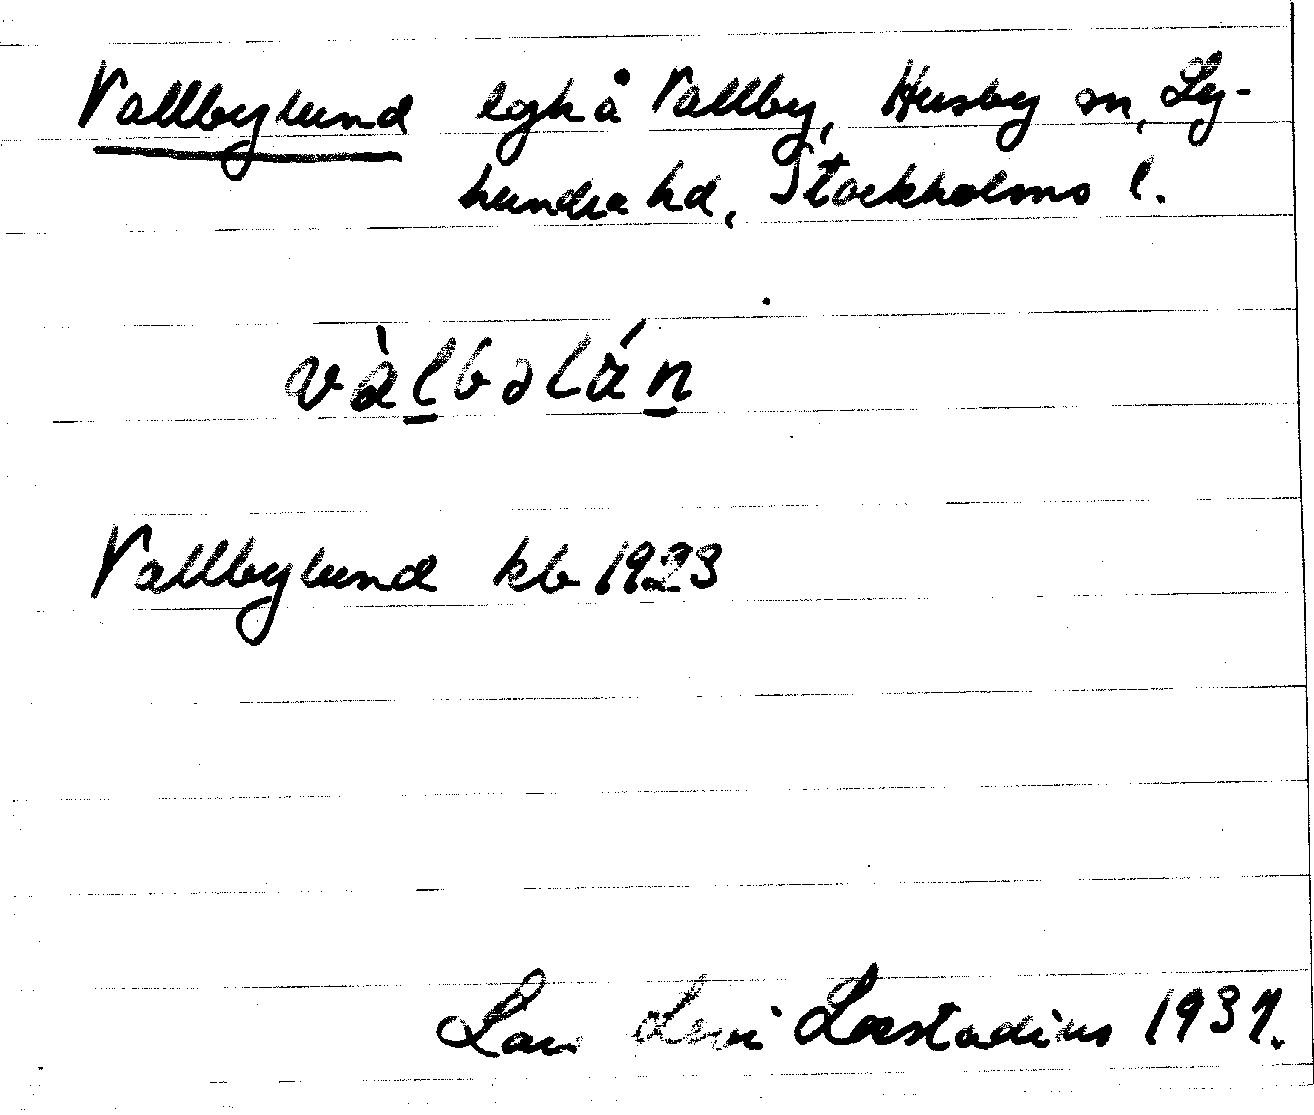 Vallbylund lgh å Vallby, Husby sn, Ly-
hundra hd, Stockholms l.
vàl̲bəlán̲
Vallbylund kb 1923
Lars Levi Læstadius 1937.